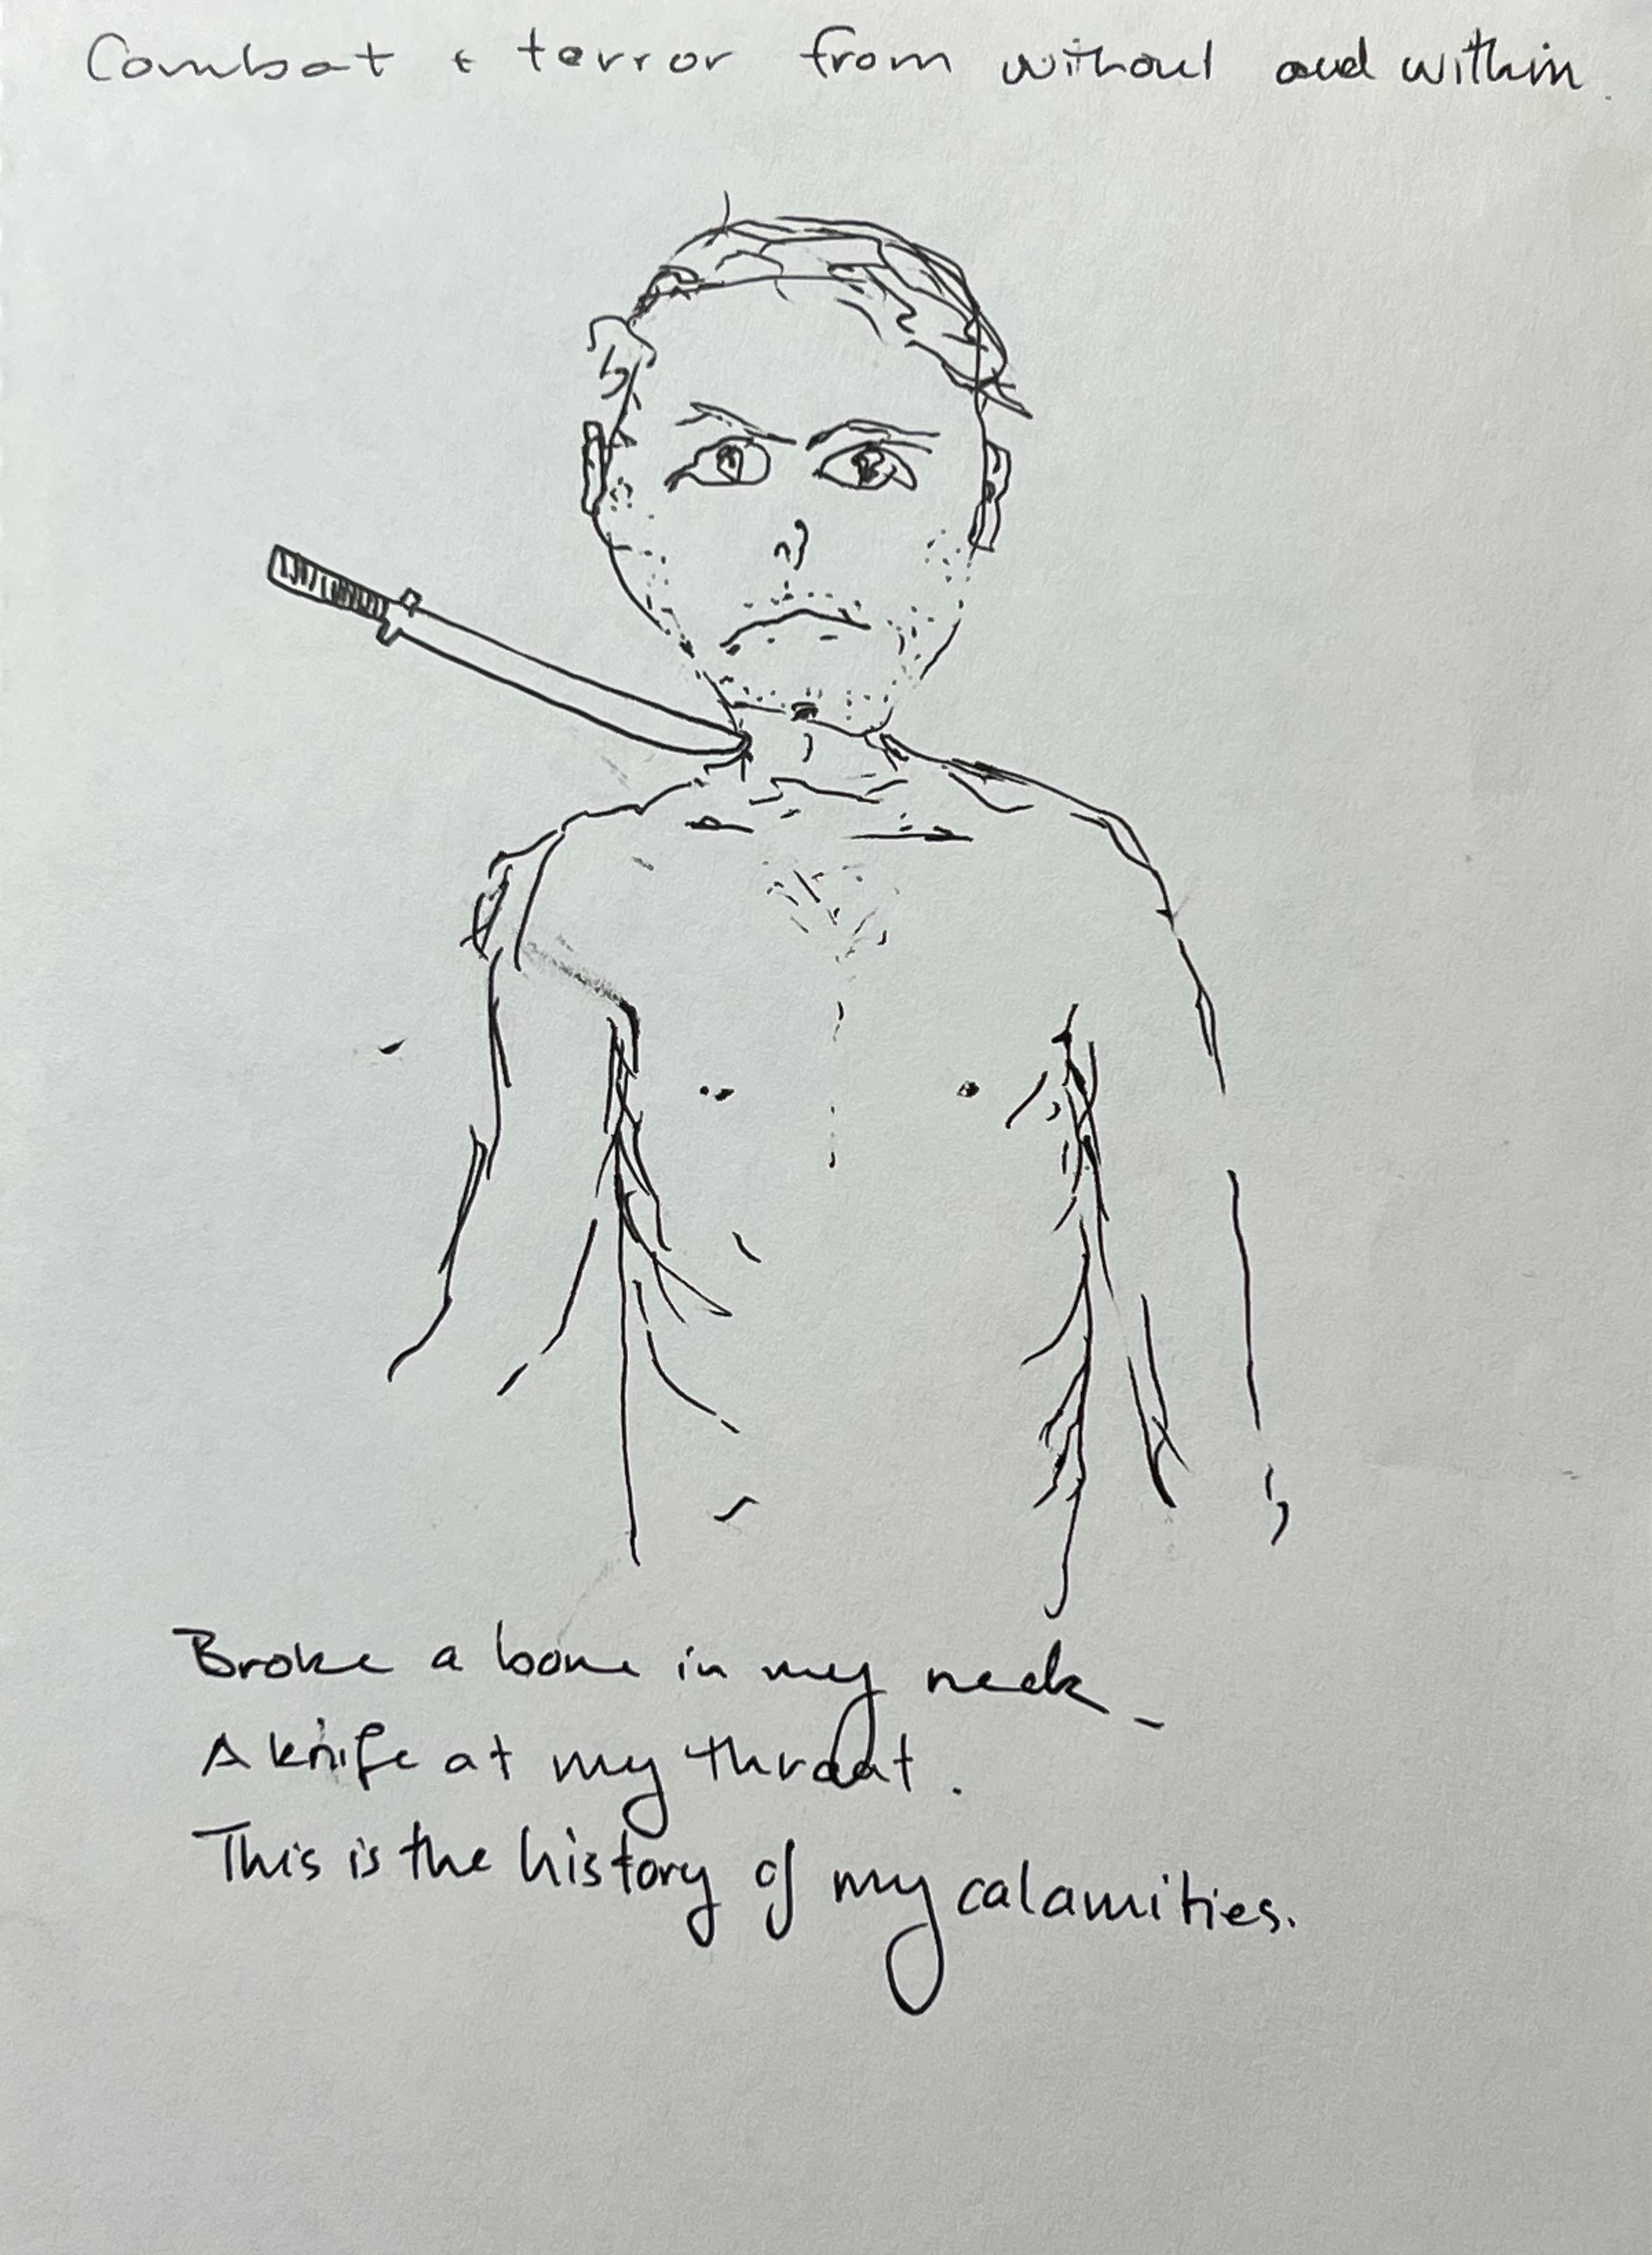 Combat & terror from without and within.
Broke a bone in my neck –
A knife at my throat.
This is the history of my calamities.